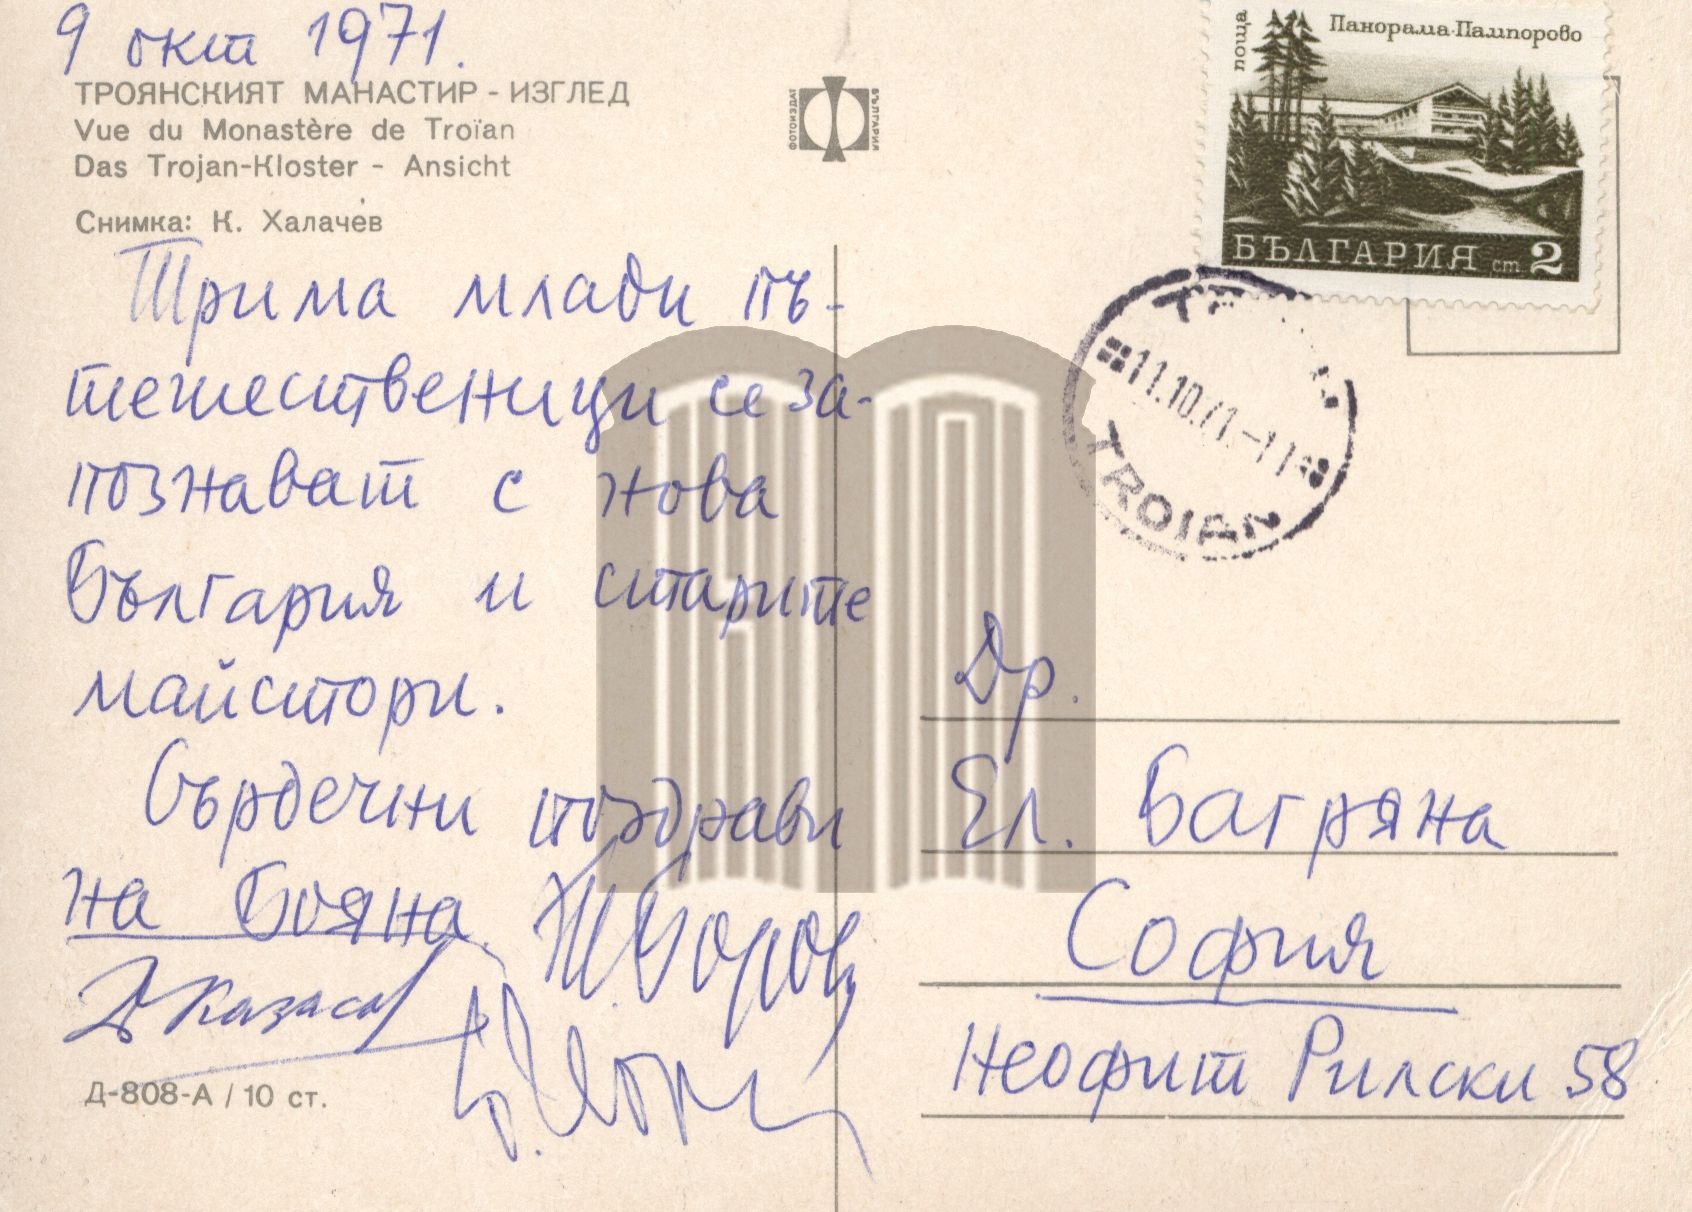 9 окт 1971.
ТРОЯНСКИЯТ МАНАСТИР - ИЗГЛЕД
Vue du Monastère de Troïan
Das Trojan-Kloster - Ansicht
Снимка: К. Халачев
Трима млади пъ-
тешественици се за-
познават с нова
България и старите
майстори.
Сърдечни поздрави
на Бояна
Д Казасов
Д-808-А / 10 ст.
ФОТОИЗДАТ
БЪЛГАРИЯ
поща
Панорама-Пампорово
БЪЛГАРИЯ ст 2
11.10.71
TROIAN
Др.
Ел. Багряна
София
Неофит Рилски 58